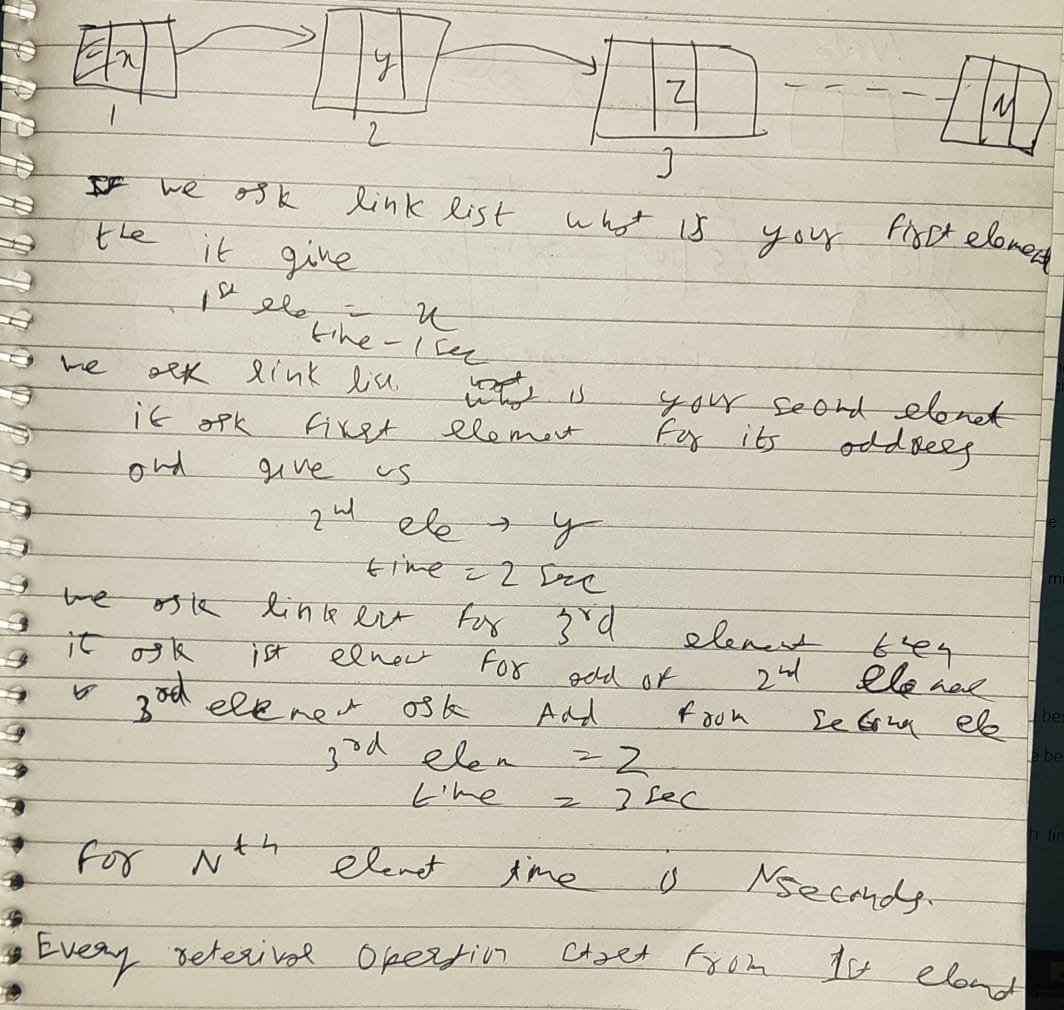 x y z N
1 2 3
If we ask link list what is your first element
the it give
1st ele = x
time - 1 sec
we ask link lis what is your seond elemet
it ask first element for its address
and give us
2nd ele → y
time = 2 sec
we ask link list for 3rd element then
it ask 1st elment for add of 2nd
3rd element ask Add from ele
3rd elem = Z
time = 3 sec
For Nth elemet time is N seconds.
Every reterival opertion start from 1st elemnt